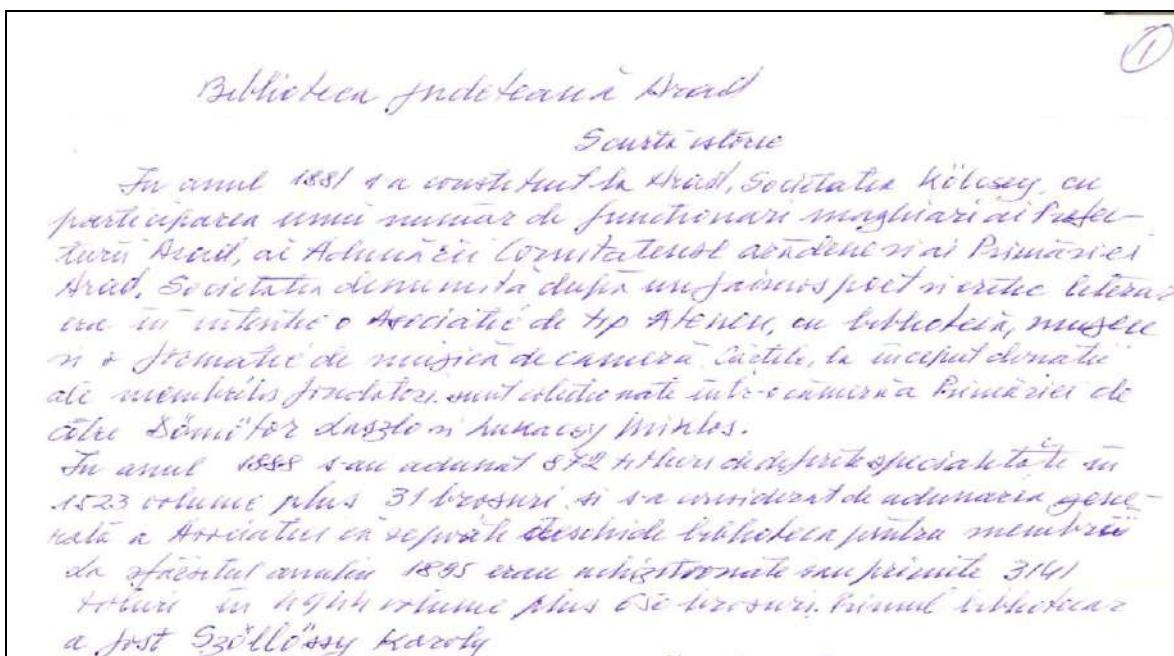 1
Biblioteca Județeană Arad
Scurtă istorie
In anul 1881 s-a constituit la Arad, Societatea Kölcsey, cu
participarea unui număr de funcționari maghiari ai Prefec-
turii Arad, ai Adunării Comitatense arădene și ai Primăriei
Arad. Societatea denumită după un faimos poet și critic literar
era în intenție o Asociație de tip Ateneu, cu bibliotecă, muzee
și o formație de muzică de cameră. Cărțile, la început donație
ale membrilor fondatori, sunt colecționate într-o cameră a Primăriei de
către Dömötör Laszlo și Lukacsy Miklos.
In anul 1888 s-au adunat 872 titluri de diferite specialități în
1523 volume plus 31 broșuri și s-a considerat de adunarea gene-
rală a Asociației că se poate deschide biblioteca pentru membrii
La sfârșitul anului 1895 erau achiziționate sau primite 3141
titluri în 4944 volume plus 650 broșuri. Primul bibliotecar
a fost Szöllössy Karoly